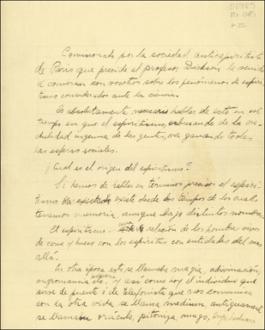 Comisionado por la sociedad antiespiritista
de Paris que preside el profesor Dickson he venido
a conversar con vosotros sobre los fenómenos de espiri-
tismo considerados ante la ciencia.
Es absolutamente necesario hablar de esto en un
tiempo en que el espiritismo, abusando de la cre-
dulidad ingenua de las gentes, va ganando todas
las esferas sociales.
¿Cual es el origen del espiritismo?
Si hemos de hablar en terminos precisos el espiri-
tismo ha existido desde los tiempos de los cuales
tenemos memoria, aunque bajo distintos nombres.
El espiritismo relación de los hombres vivos
de carne y hueso con los espiritus con entidades del mas
allá.
En otra época esto se llamaba magía, adivinación,
nigromancia etc. Y asi como hoy el individuo que
sirve de puente o de telefonista que nos comunica
con la otra vida se llama medium antiguamente
se llamaba oráculo, pitonisa, mago,